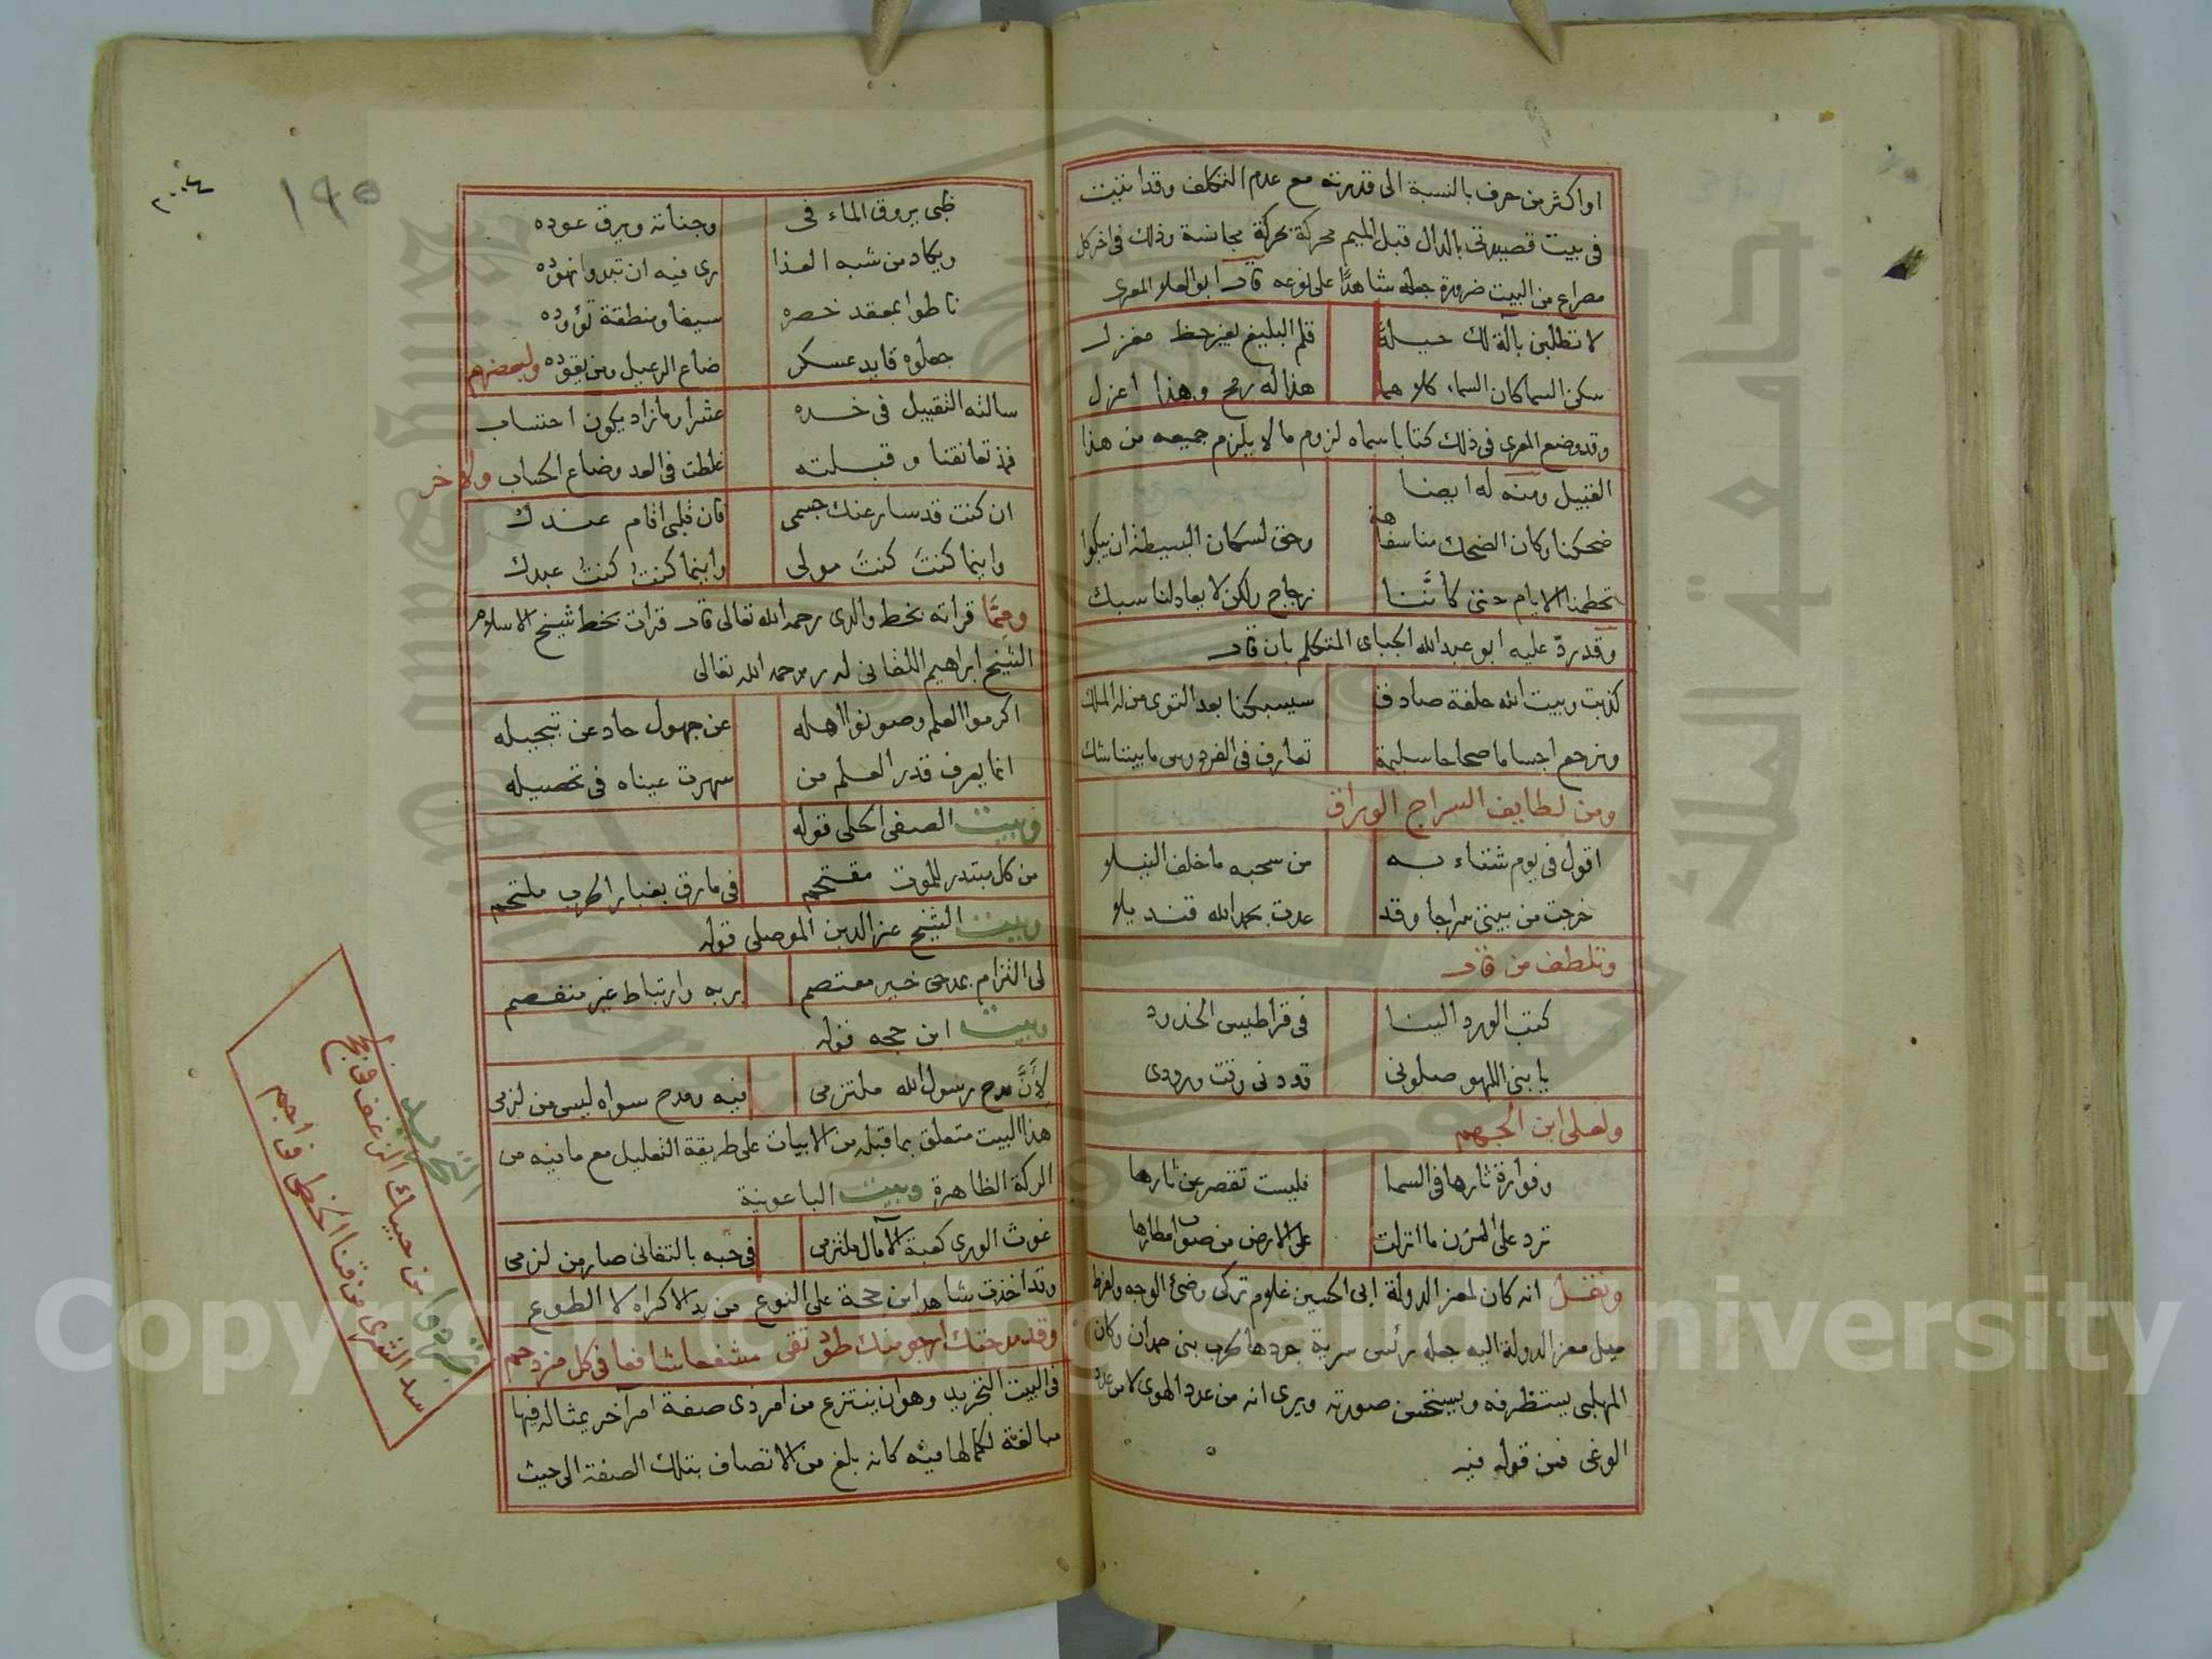 او اكثر من حرف بالنسبة الى قدرته مع عدم التكلف وقد اتيت
في بيت قصيدتى بالدال قبل الميم محركة بحركة مجانسة وذلك في اخر كل
مصراع من البيت ضرورة جعله شاهدًا على نوعه قال ابو العلا المعرى
لا تطلبن بآلة لك حيلةً قلم البليغ بغير حظ مغزل
سكن السما كان السماء كلاهما هذا له رمح وهذا اعزل
وقد وضع المعرى في ذلك كتابا سماه لزوم ما لا يلزم جميعه من هذا
القبيل ومنه له ايضا
ضحكنا وكان الضحك منا سفاهة وحق لسكان البسيطة ان يبكوا
تحطمنا الايام حتى كأننا زجاج ولكن لا يعاد لنا سبك
وقد ردّ عليه ابو عبد الله الجباى المتكلم بان قال
كذبت وبيت الله حلفة صادق سيسبكنا بعد التوى من له الملك
ونرجع اجساما صحاحا سليمة تعارف في الفردوس ما بيننا شك
ومن لطايف السراج الوراق
اقول في يوم شتاء به من سحبه ما خلف النيلا
خرجت من بيتى سراجا وقد عدت بحمد الله قنديلا
وتلطف من قال
كتب الورد الينا في قراطيس الخدود
يا بنى اللهو صلونى قد دنى وقت ورودى
ولعلى ابن الجهم
وفوارة ثارها في السما فليست تقصر عن ثارها
ترد على المزن ما انزلت على الارض من صوب امطارها
ونقل انه كان لمعز الدولة ابى الحسين غلام تركى وضئ الوجه ولفرط
ميل معز الدولة اليه جعله رئيس سرية جردها لحرب بنى حمدان وكان
المهلبى يستظرفه ويستحسن صورته ويرى انه من عدد الهوى لا من عدد
الوغى فمن قوله فيه
١٩٥
ظبى يروق الماء في وجناته ويرق عوده
ويكاد من شبه العذا رى فيه ان تبدوا نهوده
ناطوا بمعقد خصره سيفا ومنطقة تؤوده
جعلوه قايد عسكر ضاع الرعيل ومن يقوده ولبعضهم
سالته التقبيل في خده عشرا وما زاد يكون احتساب
فمذ تعانقنا وقبلته غلطت في العد وضاع الحساب ولاخر
ان كنت قد سار عنك جسمى فان قلبى اقام عندك
واينما كنتَ كنتَ مولى واينما كنتُ كنتُ عبدك
وممّا قراته بخط والدى رحمه الله تعالى قال قرات بخط شيخ الاسلام
الشيخ ابراهيم اللقانى له رحمه الله تعالى
اكرموا العلم وصونوا اهله عن جهول حاد عن تبجيله
انما يعرف قدر العلم من سهرت عيناه في تحصيله
وبيت الصفى الحلى قوله
من كل مبتدر للموت مقتحم في مارق بغبار الحرب ملتحم
وبيت الشيخ عز الدين الموصلى قوله
لى التزام بمدحى خير معتصم بربه وارتباط غير منفصم
وبيت ابن حجه قوله
لأنَّ مدح رسول الله ملتزمى فيه ومدح سواه ليس من لزمى
هذا البيت متعلق بما قبله من الابيات على طريقة التعليل مع ما فيه من
الركة الظاهرة وبيت الباعونية
غوث الورى كعبة الآمال ملتزمى في حبه بالتفانى صار من لزمى
وقد اخذت شاهد ابن حجة على النوع من يد الاكراه لا الطوع
وقد مدحتك ارجو منك طوق تقى مشفعا شافعا في كل مزدحم
في البيت التجريد وهو ان ينتزع من امر ذى صفة امر آخر يماثله فيها
مبالغة لكمالها فيه كانه بلغ من الاتصاف بتلك الصفة الى حيث
التجريد
من حبيك الزغف في لجج
اسد الشرى من قنا الخطى في اجم